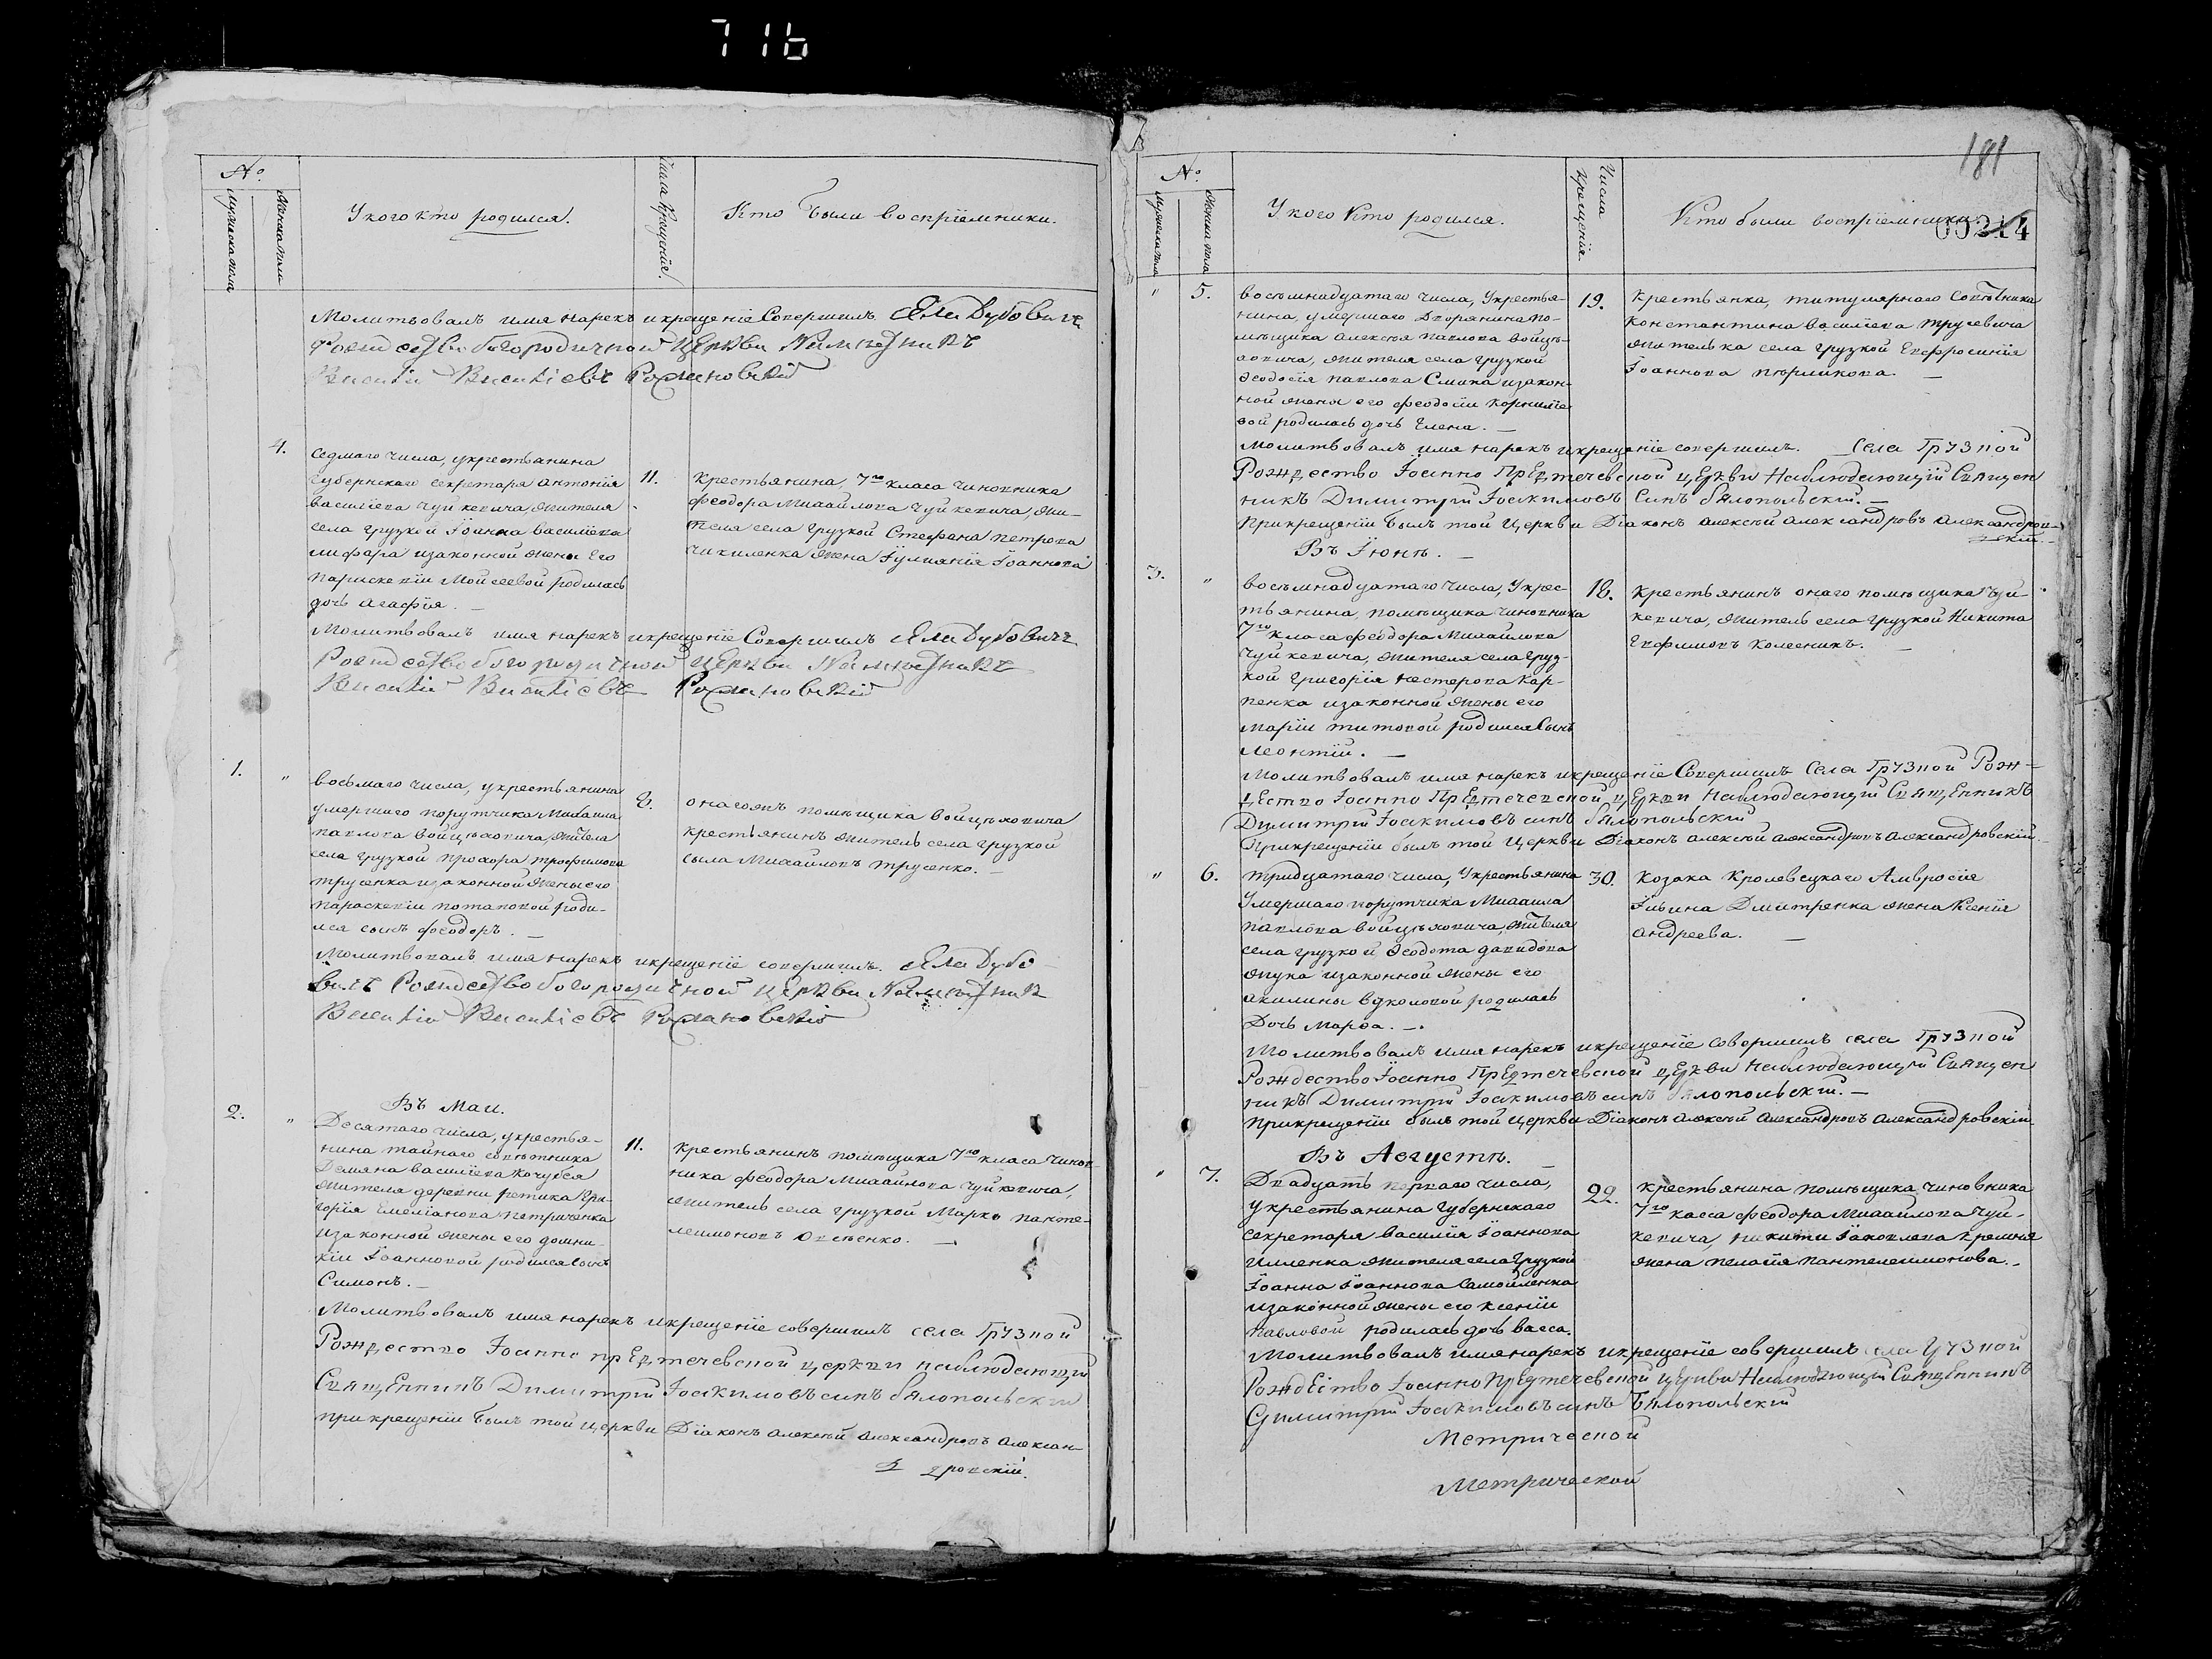 716
№
мужеска пола
женска пола
У кого кто родился.
Числа крещеніе.
Кто были воспріемники.
Молитвовалъ имя нарекъ и крещеніе Совершилъ Села Дубовичъ
Рождество богородичной церкви Намѣстникъ
Василій Василіевъ Романовскій
4.
седмаго числа, укрестьянина
губернскаго секретаря Антонія
василіева Чуйкевича, жителя
села грузкой Іоанна василіева
лифара изаконной жены Его
Парискевіи Мойсеевой родилась
дочь Агафія.
11.
крестьянина, 7го класа чиновника
феодора Михайлова Чуйкевича, жи-
теля села грузкой Стефана петрова
чикиленка жена Іуліянія Іоаннова
Молитвовалъ имя нарекъ и крещеніе Совершилъ Села Дубовичъ
Рождество богородичной церкви Намѣстникъ
Василій Василіевъ Романовскій
1.
"
восьмаго числа, укрестьянина
умершаго порутчика Михаила
павлова войцѣховича, жителя
села грузкой прохора трофимова
трусенка изаконной жены его
параскевіи потаповой роди-
лся сынъ феодоръ.
8.
онагожъ помѣщика войцѣховича
крестьянинъ житель села грузкой
сыла Михайловъ трусенко.
Молитвовалъ имя нарекъ и крещеніе совершилъ. Села Дубо-
вичъ Рождество богородичной церкви Намѣстникъ
Василій Василіевъ Романовскій
Въ Маи.
2.
"
Десятаго числа, укрестья-
нина тайнаго совѣтника
Демяна василіева Кочубея
жителя деревни ретика Гри-
горія Емеліанова петриченка
изаконной жены его домни-
кіи Іоанновой родился сынъ
Симонъ.
11.
крестьянинъ помѣщика 7го класа чинов-
ника феодора Михайлова Чуйкевича,
житель села грузкой Марко панте-
леимоновъ Овсѣенко.
Молитвовалъ имя нарекъ и крещеніе совершилъ села Грузкой
Рождество Іоанно предтечевской церкви наблюдающій
Священникъ Димитрій Іоакимовъ синъ бялопольскій
при крещеніи былъ той церкви Діаконъ Алексѣй Александровъ Алексан-
дровскій.
181
№
мужеска пола
женска пола
У кого кто родился.
Числа крещеніе.
Кто были воспріемники.
00214
"
5.
восьмнадцатаго числа, Укрестья-
нина, умершаго Дворянина по-
мѣщика алексѣя павлова войцѣ-
ховича, жителя села грузкой
Феодосія павлова Смика изакон-
ной жены его феодосіи корниліе-
вой родилась дочь Елена.
19.
крестьянка, титулярнаго Совѣтника
константина василіева трусевича
жителька села грузкой Евфросинія
Іоаннова
Молитвовалъ имя нарекъ и крещеніе совершилъ. Села Грузкой
Рождество Іоанно Предтечевской церкви Наблюдающій Священ
никъ Димитрій Іоакимовъ Синъ бялопольскій.
При крещеніи былъ той Церкви Діаконъ Алексѣй Александровъ Александров-
скій.
Въ Іюнѣ.
3.
"
восьмнадцатаго числа, Укрес-
тьянина, помѣщика чиновника
7го класа феодора Михайлова
Чуйкевича, жителя села груз-
кой григорія нестерова кар-
пенка изаконной жены его
маріи титовой родился сынъ
Леонтій.
18.
крестьянинъ онаго помѣщика Чуй-
кевича, житель села грузкой Никита
Евфимовъ Колесникъ.
Молитвовалъ имя нарекъ и крещеніе Совершилъ Села Грузкой Рож-
дество Іоанно Предтечевской церкви Наблюдающій Священникъ
Димитрій Іоакимовъ синъ бялопольскій
При крещеніи былъ той Церкви Діаконъ Алексѣй Александровъ Александровскій.
"
6.
тридцатаго числа, Укрестьянина
Умершаго порутчика Михаила
павлова войцѣховича, жителя
села грузкой Феодота давидова
жука изаконной жены его
акилины родилась
Дочь Марфа.
30.
козака Кролевецкаго Амвросія
Ильина Дмитренка жена Ксенія
андреева.
Молитвовалъ имя нарекъ и крещеніе совершилъ села Грузкой
Рождество Іоанно Предтечевской церкви Наблюдающій Священ
никъ Димитрій Іоакимовъ синъ бялопольскій.
При крещеніи былъ той Церкви Діаконъ Алексѣй Александровъ Александровскій
Въ Августѣ.
"
7.
Двадцать перваго числа,
укрестьянина губернскаго
секретаря василія Іоаннова
Иленка жителя села грузкой
Іоанна Іоаннова Самойленка
изаконной жены его ксеніи
павловой родилась дочь васса.
22.
крестьянина помѣщика чиновника
7го касса феодора Михайлова Чуй-
кевича, никити Іаковлева кремня
жена пелагія пантелеимонова.
Молитвовалъ имя нарекъ и крещеніе совершилъ села Грузкой
Рождество Іоанно Предтечевской церкви Наблюдающій Священникъ
Димитрій Іоакимовъ синъ Бялопольскій
Метрической
Метрической